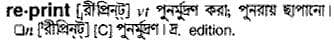 re·print [ˌরীˈপ্রিন্‌ট্] vt পুনর্মুদ্রণ করা; পুনরায় ছাপানো।
□n [ˈরীপ্রিন্‌ট্] [C] পুনর্মুদ্রণ। দ্র. edition.